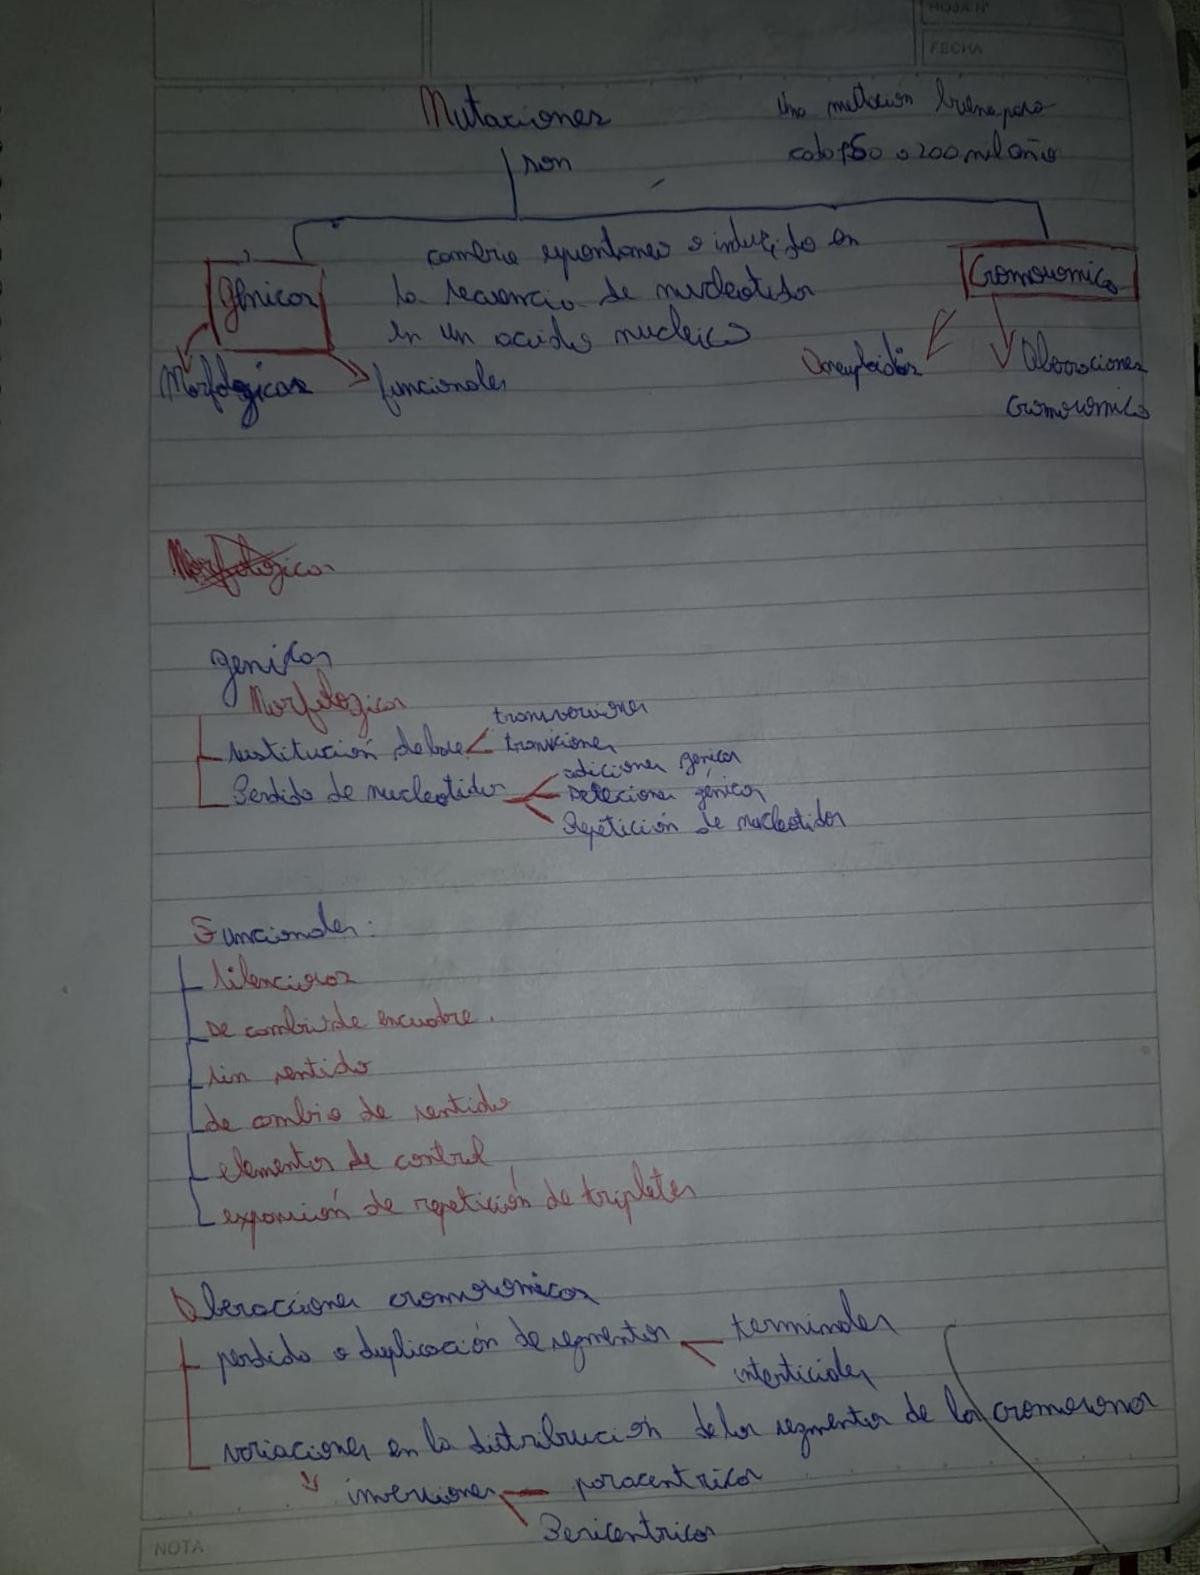 HOJA N°
FECHA
Mutaciones
Una mutación buena pasa
cada 150 a 200 mil años
son
cambio espontaneo o inducido en
la secuencia de nucleotidos
en un acido nucleico
Génicas
Cromosomica
Morfologicas
funcionales
Aberraciones
Cromosomica
Morfologicas
genicas
Morfologicas
sustitución de base
transversiones
transiciones
Perdida de nucleotidos
adiciones genicas
Deleciones génicas
Repetición de nucleotidos
Funcionales:
silenciosas
De cambio de encuadre.
sin sentido
de cambio de sentido
elementos de control
expansión de repetición de tripletes
Aberacciones cromosomicas
perdida o duplicación de segmentos
terminales
intersticiales
variaciones en la distribución de los segmentos de los cromosomas
inversiones
paracentricas
Pericentricas
NOTA